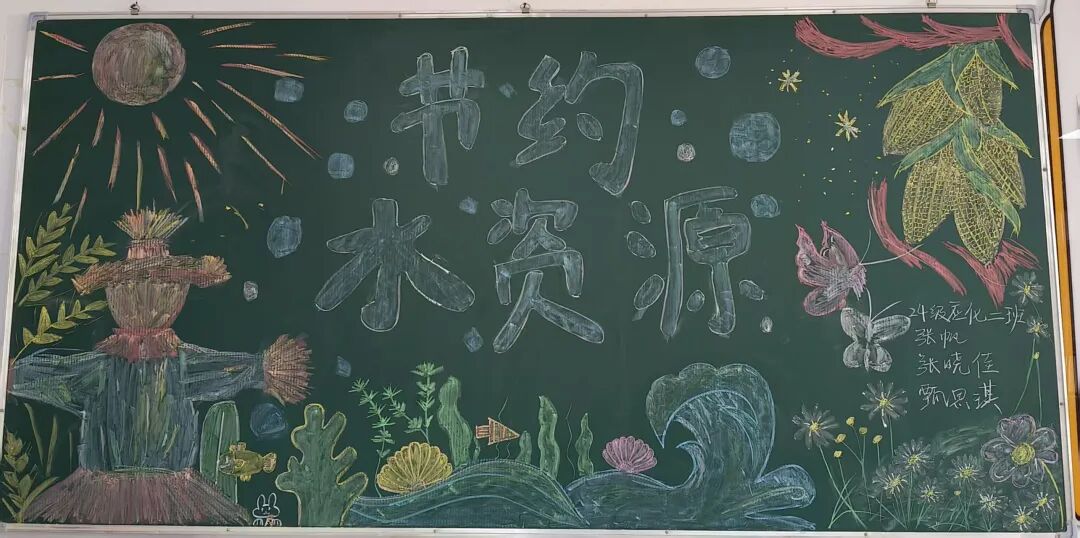 节约
水资源
24级应化二班
张帆
张晓佳
甄思琪